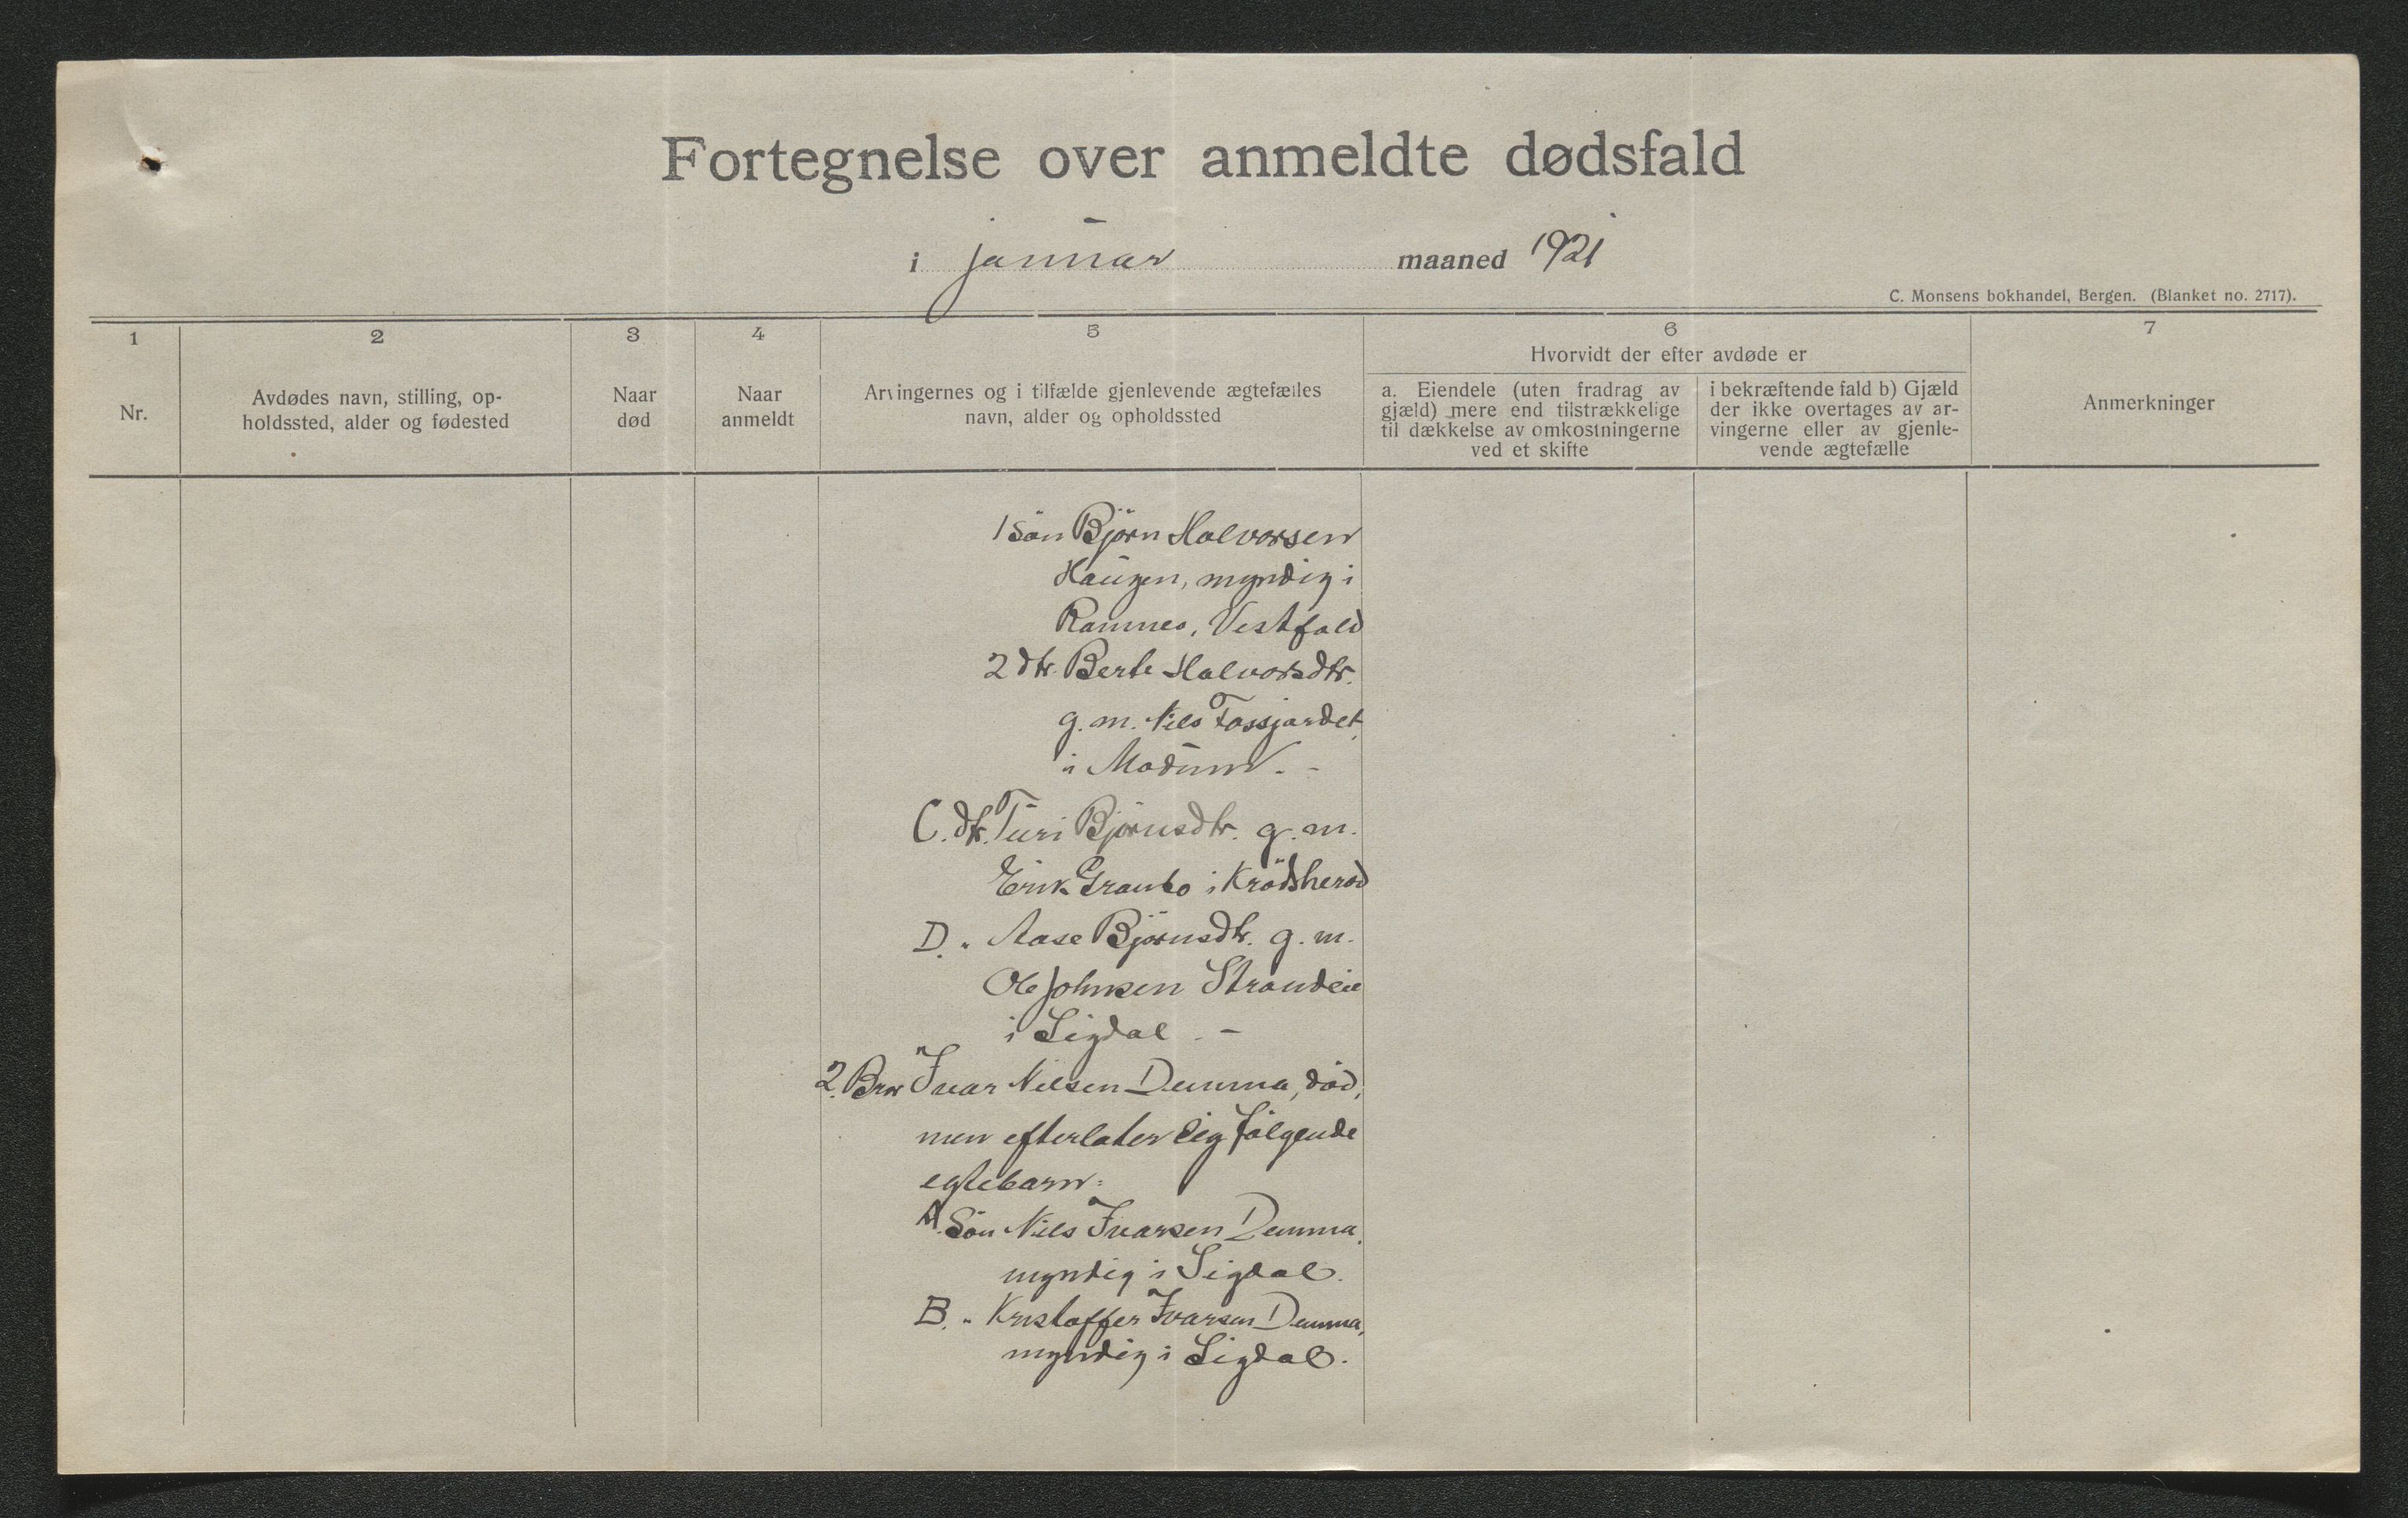 Fortegnelse over anmeldte dødsfald
i januar maaned 1921
C. Monsens bokhandel, Bergen. (Blanket no. 2717).
1
2
3
4
5
6
7
Nr.
Avdødes navn, stilling, op-
holdssted, alder og fødested
Naar
død
Naar
anmeldt
Arvingernes og i tilfælde gjenlevende ægtefælles
navn, alder og opholdssted
Hvorvidt der efter avdøde er
a. Eiendele (uten fradrag av
gjæld) mere end tilstrækkelige
til dækkelse av omkostningerne
ved et skifte
i bekræftende fald b) Gjæld
der ikke overtages av ar-
vingerne eller av gjenle-
vende ægtefælle
Anmerkninger
1 Sön Björn Halvorsen
Haugen, myndig i
Ramnes, Vestfold
2 dtr. Berte Halvorsdtr.
g. m. Nils Fossjordet
i Modum. -
C. dtr. Turi Björnsdtr. g. m.
Erik Granbo i Krödsherad
D. " Aase Björnsdtr. g. m.
Ole Johnsen Strandeie
i Sigdal. -
2. Bror Ivar Nilsen Demma, död,
men efterlater sig fölgende
egtebarn:
A. Sön Nils Ivarsen Demma,
myndig i Sigdal.
B. " Kristoffer Ivarsen Demma,
myndig i Sigdal.